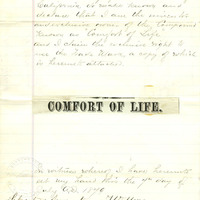 California, do make known and
declare that I am the
and exclusive owner of the Compound
known as "Comfort of Life"
and I claim the exclusive right to
use the Trade Mark, a copy of which
is hereunto attached
COMFORT OF LIFE.
In witness whereof I have hereunto
set my hand this the day of
July A.D.